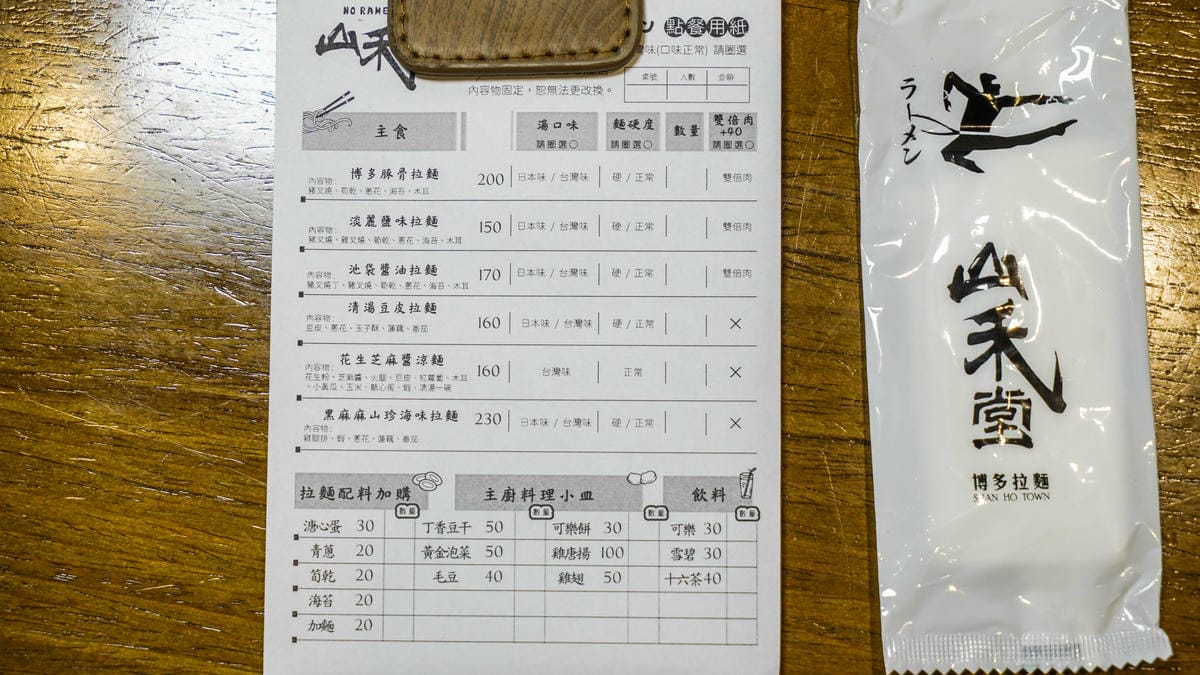 NO RAME
山禾
ン 點餐用紙
味(口味正常) 請圈選
內容物固定，恕無法更改換。
桌號 人數 金額
主食 湯口味 請圈選○ 麵硬度 請圈選○ 數量 雙倍肉 +40 請圈選○
博多豚骨拉麵 200 日本味 / 台灣味 硬 / 正常 雙倍肉
內容物: 豬叉燒、筍乾、蔥花、海苔、木耳
淡麗鹽味拉麵 150 日本味 / 台灣味 硬 / 正常 雙倍肉
內容物: 豬叉燒、雞叉燒、筍乾、蔥花、海苔、木耳
池袋醬油拉麵 170 日本味 / 台灣味 硬 / 正常 雙倍肉
內容物: 豬叉燒丁、豬叉燒、筍乾、蔥花、海苔、木耳
清湯豆皮拉麵 160 日本味 / 台灣味 硬 / 正常 ×
內容物: 豆皮、蔥花、玉子酥、蓮藕、番茄
花生芝麻醬涼麵 160 台灣味 正常 ×
內容物: 花生粉、芝麻醬、火腿、豆皮、紅蘿蔔、木耳
、小黃瓜、玉米、糖心蛋、蝦、清湯一碗
黑麻麻山珍海味拉麵 230 日本味 / 台灣味 硬 / 正常 ×
內容物: 雞腿排、蝦、蔥花、蓮藕、番茄
拉麵配料加購 數量 主廚料理小皿 數量 數量 飲料 數量
溏心蛋 30 丁香豆干 50 可樂餅 30 可樂 30
青蔥 20 黃金泡菜 50 雞唐揚 100 雪碧 30
筍乾 20 毛豆 40 雞翅 50 十六茶 40
海苔 20
加麵 20
ラーメン
山禾堂
博多拉麵
SHAN HO TOWN